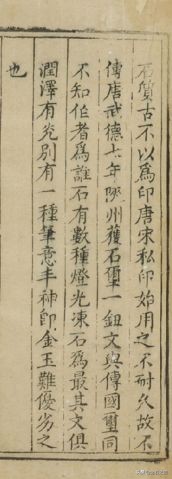 石質古不以爲印唐宋私印始用之不耐久故不
傳唐武德七年陝州獲石璽一鈕文與傳國璽同
不知作者爲誰石有數種燈光凍石爲最其文俱
潤澤有光別有一種筆意丰神卽金玉難優劣之
也